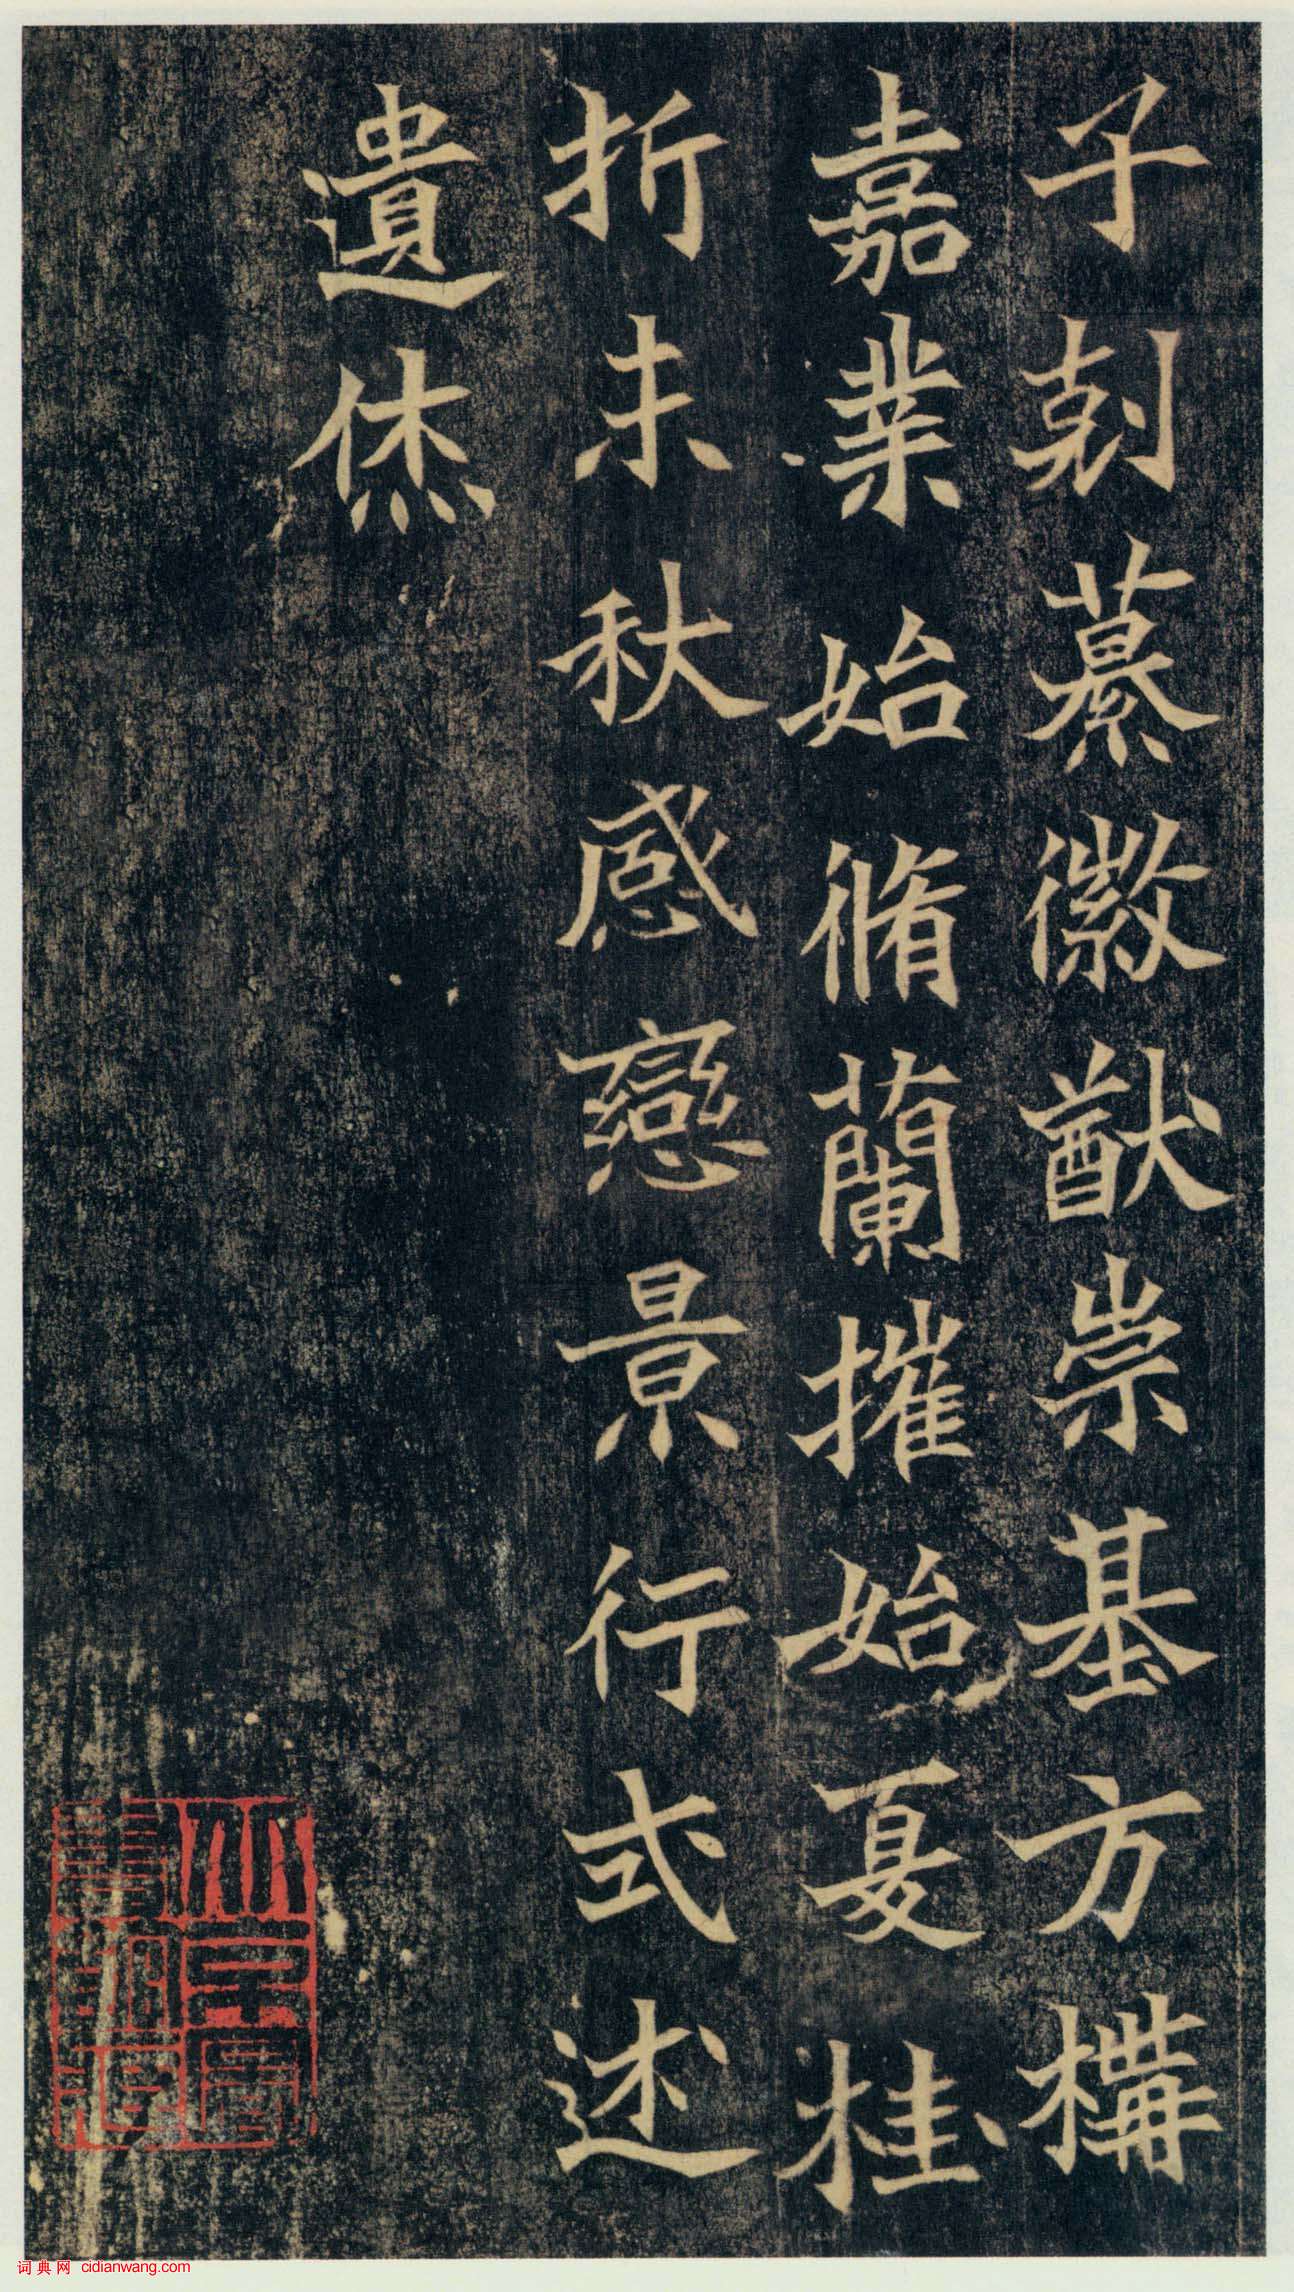 子剋纂徽猷崇基方構
嘉業始脩蘭摧始夏桂
折未秋感戀景行式述
遺烋
词典网 cidianwang.com